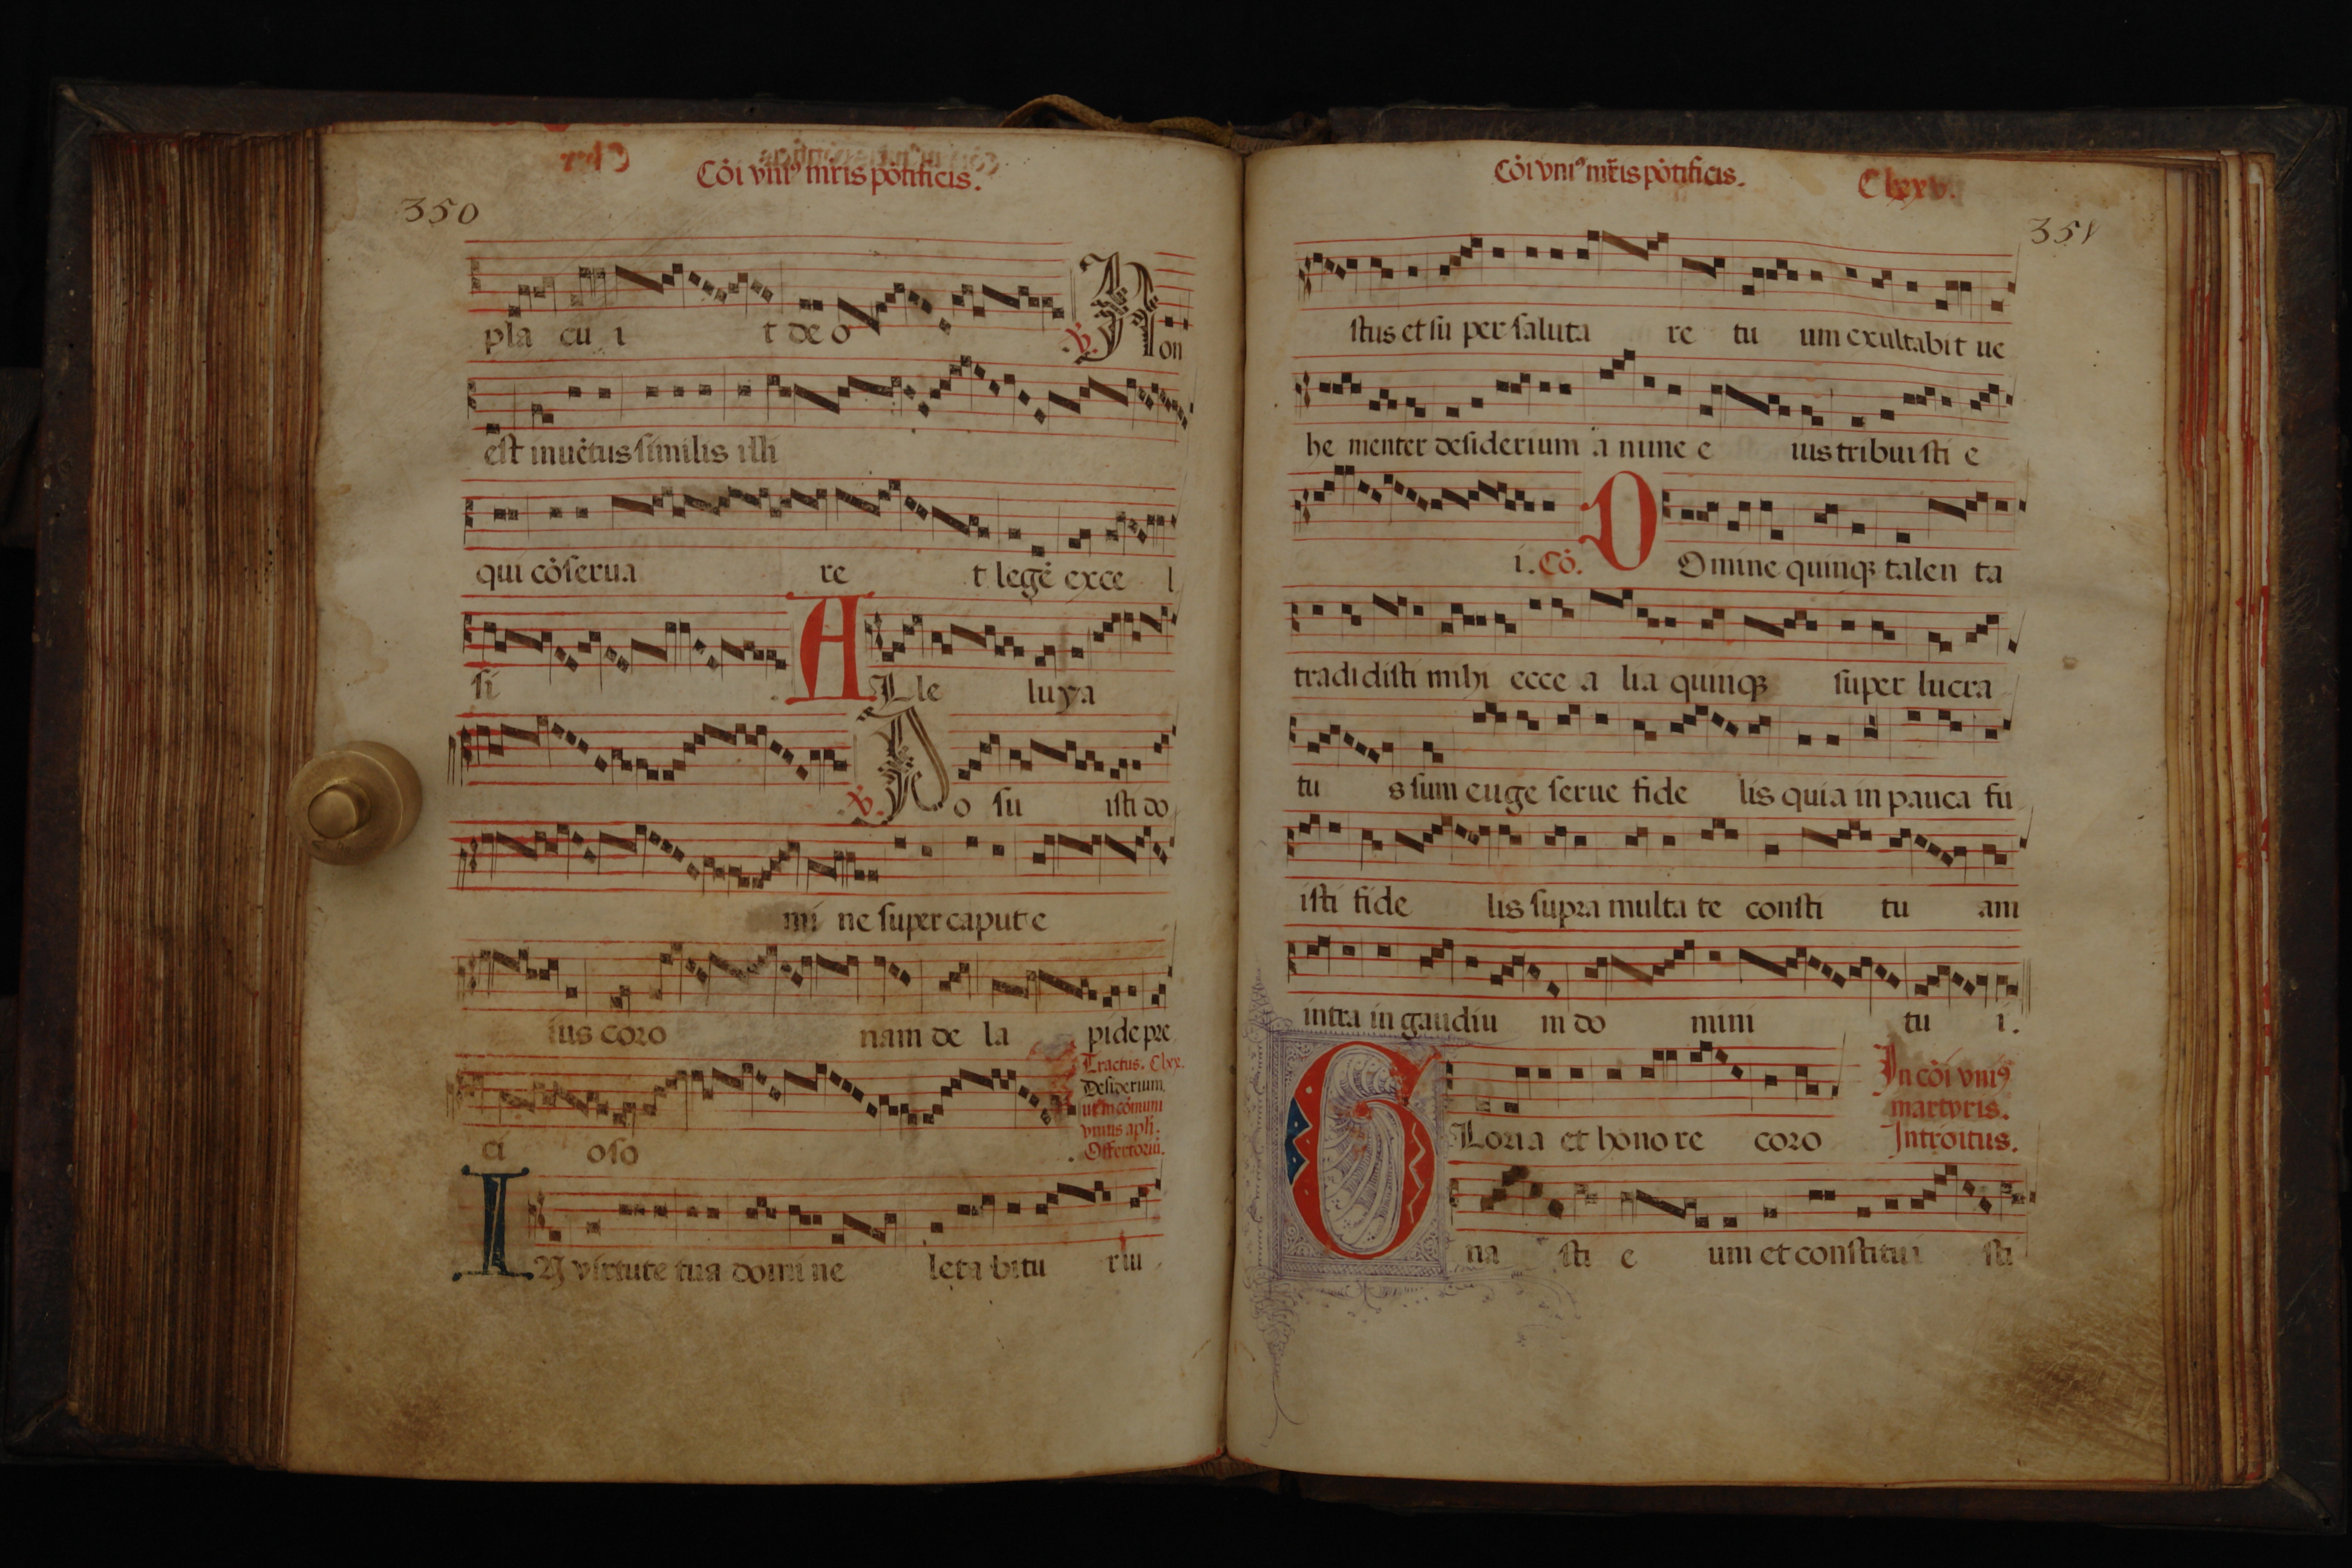 Cōi vniꝰ mr̄is pōtificis.
350
pla cu i t de o ℣. Non
est inuētus similis illi
qui cōserua re t legē exce l
si . ALle luya
℣. Po su isti do
mi ne super caput e
ius coro nam de la pide pre
Tractus. Clxx.
Desiderium
ut in cōmuni
vnius apli.
ci oso . Offertoriū.
IN virtute tua domi ne leta bitu r iu
Cōi vniꝰ mr̄is pōtificis. Clxxv.
351
stus et su per saluta re tu um exultabit ue
he menter desiderium a nime e ius tribuisti e
i. Cō. DOmine quinqꝫ talen ta
tradidisti mihi ecce a lia quinqꝫ super lucra
tu s sum euge serue fide lis quia in pauca fu
isti fide lis supra multa te consti tu am
intra in gaudiu m do mini tu i.
In cōi vniꝰ
martyris.
GLoria et hono re coro Introitus.
na sti e um et constitui sti